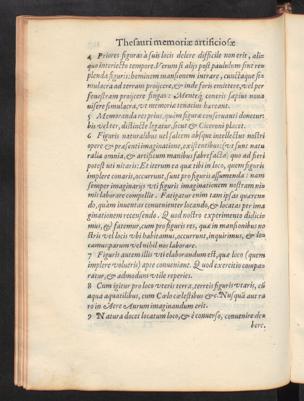 Thesauri memoriæ artificiosæ
4 Priores figuræ à suis locis delere difficile non erit, aliquo interiecto tempore. Verum si alijs post paululum sint replenda figuris: heminem mansionem intrare, cunctaque simulacra ad terram proijcere, & inde foris emittere, vel per
fenestram proijcere fingas: Mentis conuis sæpius noua
uisere simulacra, vt memoriæ tenacius hæreant.
5 Memoranda res prius, quàm figuræ conseruanti doneturbis vel ter, distincte legatur, sicut & Ciceroni placet.
6 Figuris naturalibus vel saltem absque intellectus nostri
opere & præsenti imaginatione, existentibus: (vt sunt naturalia omnia, & artificum manibus fabrefacta) quo ad fieri
potest uti uitaris: Et iterum ea quæ tibi in loco, quem figuris
implere conaris, occurrunt, sunt pro figuris assumenda: nam
semper imaginarijs vti figuris imaginationem nostram nimis laborare compellit. Fatigatur enim tam ipsas quærendo, quàm inuentas conuenienter locando, & locatas per imaginationem recensendo. Quod nostro experimento didicimus, & fatemur, cum pro figuris res, quæ in mansionibus nostris vel locis vbi habitamus, occurrunt, inquirimus, & locamus: parum vel nihil nos laborare.
7 Figuris autem illis vti elaborandum est, quæ loco (quem
implere volueris) apte conueniant. Quod exercitio comparatur, & admodum vtile reperies.
8 Cum igitur pro loco vteris terra, terreis figuris vtaris, cũ
aqua aquatilibus, cum Cœlo cælestibus &c. Nusquã aut raro in Aere Aurum imaginandi erit.
9 Natura docet locatum loco, & è conuerso, conuenire debere.